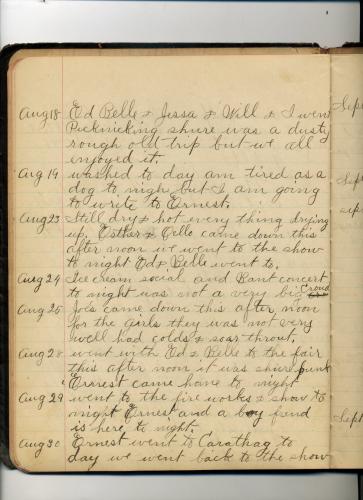 Aug 18 Ed Belle & Jessa & Will & I went
Picknicking shure was a dusty
rough old trip but we all
enjoyed it.
Aug 19 washed to day am tired as a
dog to nigh but I am going
to write to Ernest.
Aug 23 Still dry & hot every thing drying
up. Esther & Orlle came down this
after noon we went to the show
to night Ed & Belle went to.
Aug 24 Ice cream social and Bant concert
to night was not a very big Croud
Aug 25 Joes came down this after noon
for the girls they was not very
well had colds & soar throut.
Aug 28 went with Ed & Belle to the fair
this after noon it was shure punk
Ernest came home to night
Aug 29 went to the fire works & show to
night Ernest and a boy frend
is here to night.
Aug 30 Ernest went to Carathag to
day we went back to the show
Sept
Sept
Sept